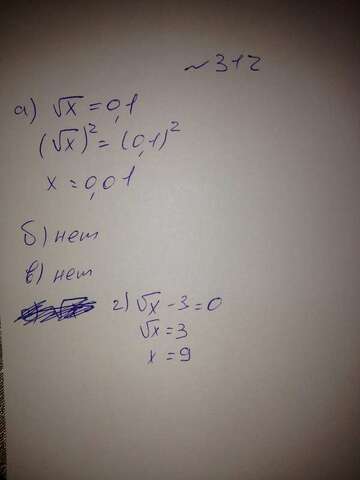 ~ 312
а) √x = 0,1
(√x)² = (0,1)²
x = 0,01
б) нет
в) нет
г) √x - 3 = 0
√x = 3
x = 9